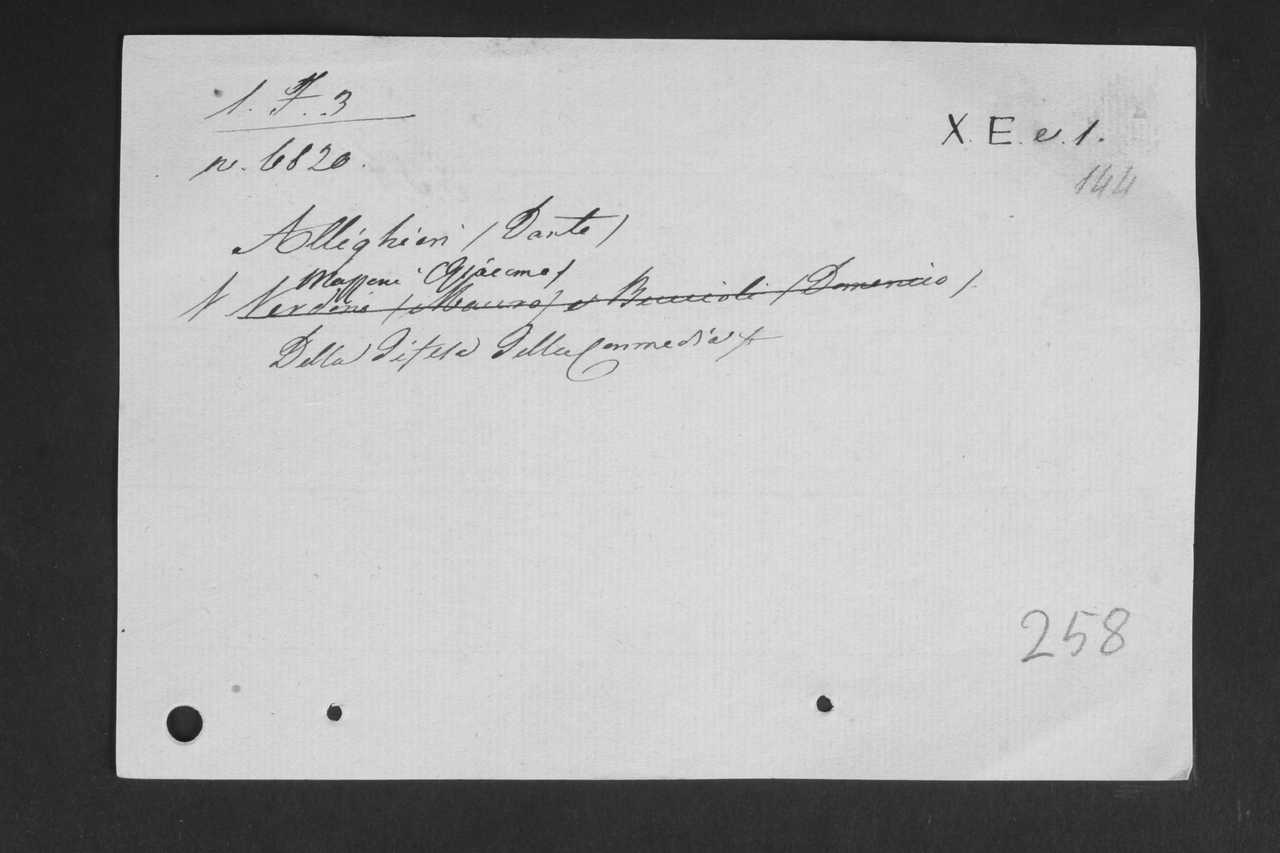 1. F. 3
X. E. e. 1.
n. 6820.
144
Alleghieri (Dante)
Mazzoni (Giacomo)
Verdoni (Mauro) e Buccioli (Domenico).
Della Difesa della Commedia
258